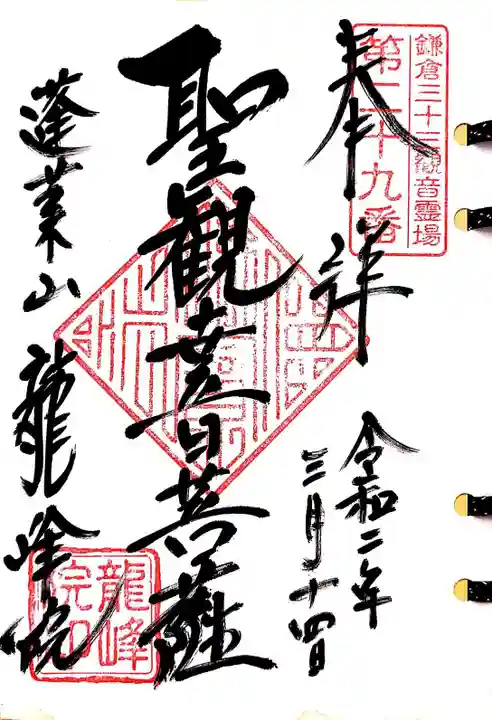 鎌倉三十三観音霊場
第二十九番
奉拝
令和二年
三月十四日
聖観音菩薩
蓬莱山龍峰院
龍峰
院印